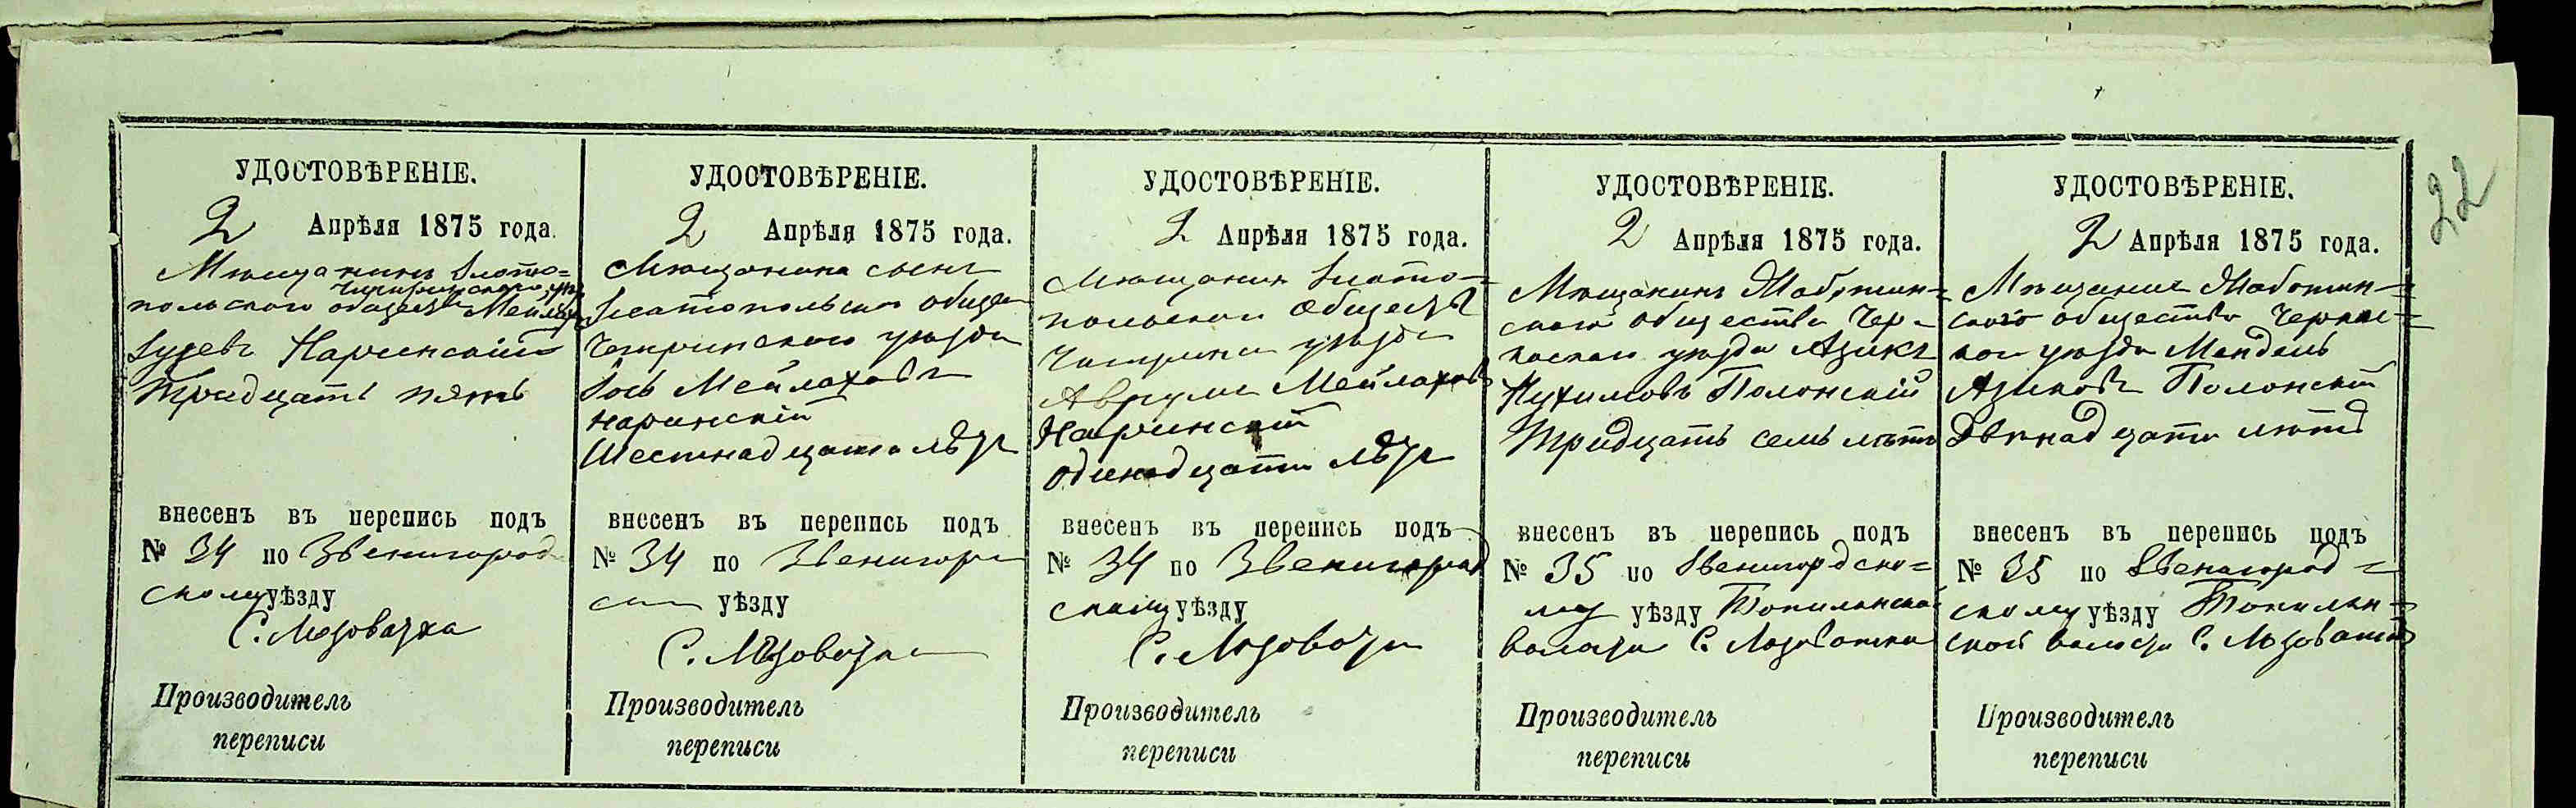 22
УДОСТОВѢРЕНІЕ.
2 Апрѣля 1875 года.
Мещанинъ Злото=
польского общест Чигиринского уѣз Мейлах
Наринскій
Тридцать пять
внесенъ въ перепись подъ
№ 34 по Звенигород
скому уѣзду
С. Лозоватка
Производитель
переписи
УДОСТОВѢРЕНІЕ.
2 Апрѣля 1875 года.
Мещанина сынъ
Златопольско общес
Чегринского уѣзда
Іось Мейлаховъ
Наринскій
Шестнадцати лѣтъ
внесенъ въ перепись подъ
№ 34 по Звенигоро
уѣзду
С. Лозоватка
Производитель
переписи
УДОСТОВѢРЕНІЕ.
2 Апрѣля 1875 года.
Мещанин Злато-
польскаго общества
уѣзда
Аврумъ Мейлахов
Наринскій
одинадцати лѣтъ
внесенъ въ перепись подъ
№ 34 по Звенигород
скому уѣзду
С. Лозоватка
Производитель
переписи
УДОСТОВѢРЕНІЕ.
2 Апрѣля 1875 года.
Мѣщанинъ Жаботин=
ского общества Чер-
каскаго уѣзда Азикъ
Нухимовъ Полонскій
Тридцать семь лѣтъ
внесенъ въ перепись подъ
№ 35 по Звенигородско=
му уѣзду Топильской
волости С. Лозоватка
Производитель
переписи
УДОСТОВѢРЕНІЕ.
2 Апрѣля 1875 года.
Мѣщанинъ Жаботин=
ского общества Черкас=
ког уѣзда Мендель
Азиковъ Полонскій
Двѣнадцати лѣтъ
внесенъ въ перепись подъ
№ 35 по Звенигород=
скому уѣзду Топильн=
ской волости С. Лозоватка
Производитель
переписи